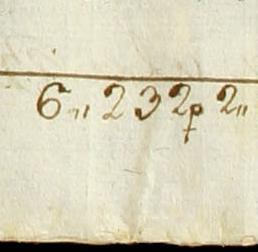 6„ 232p 2„